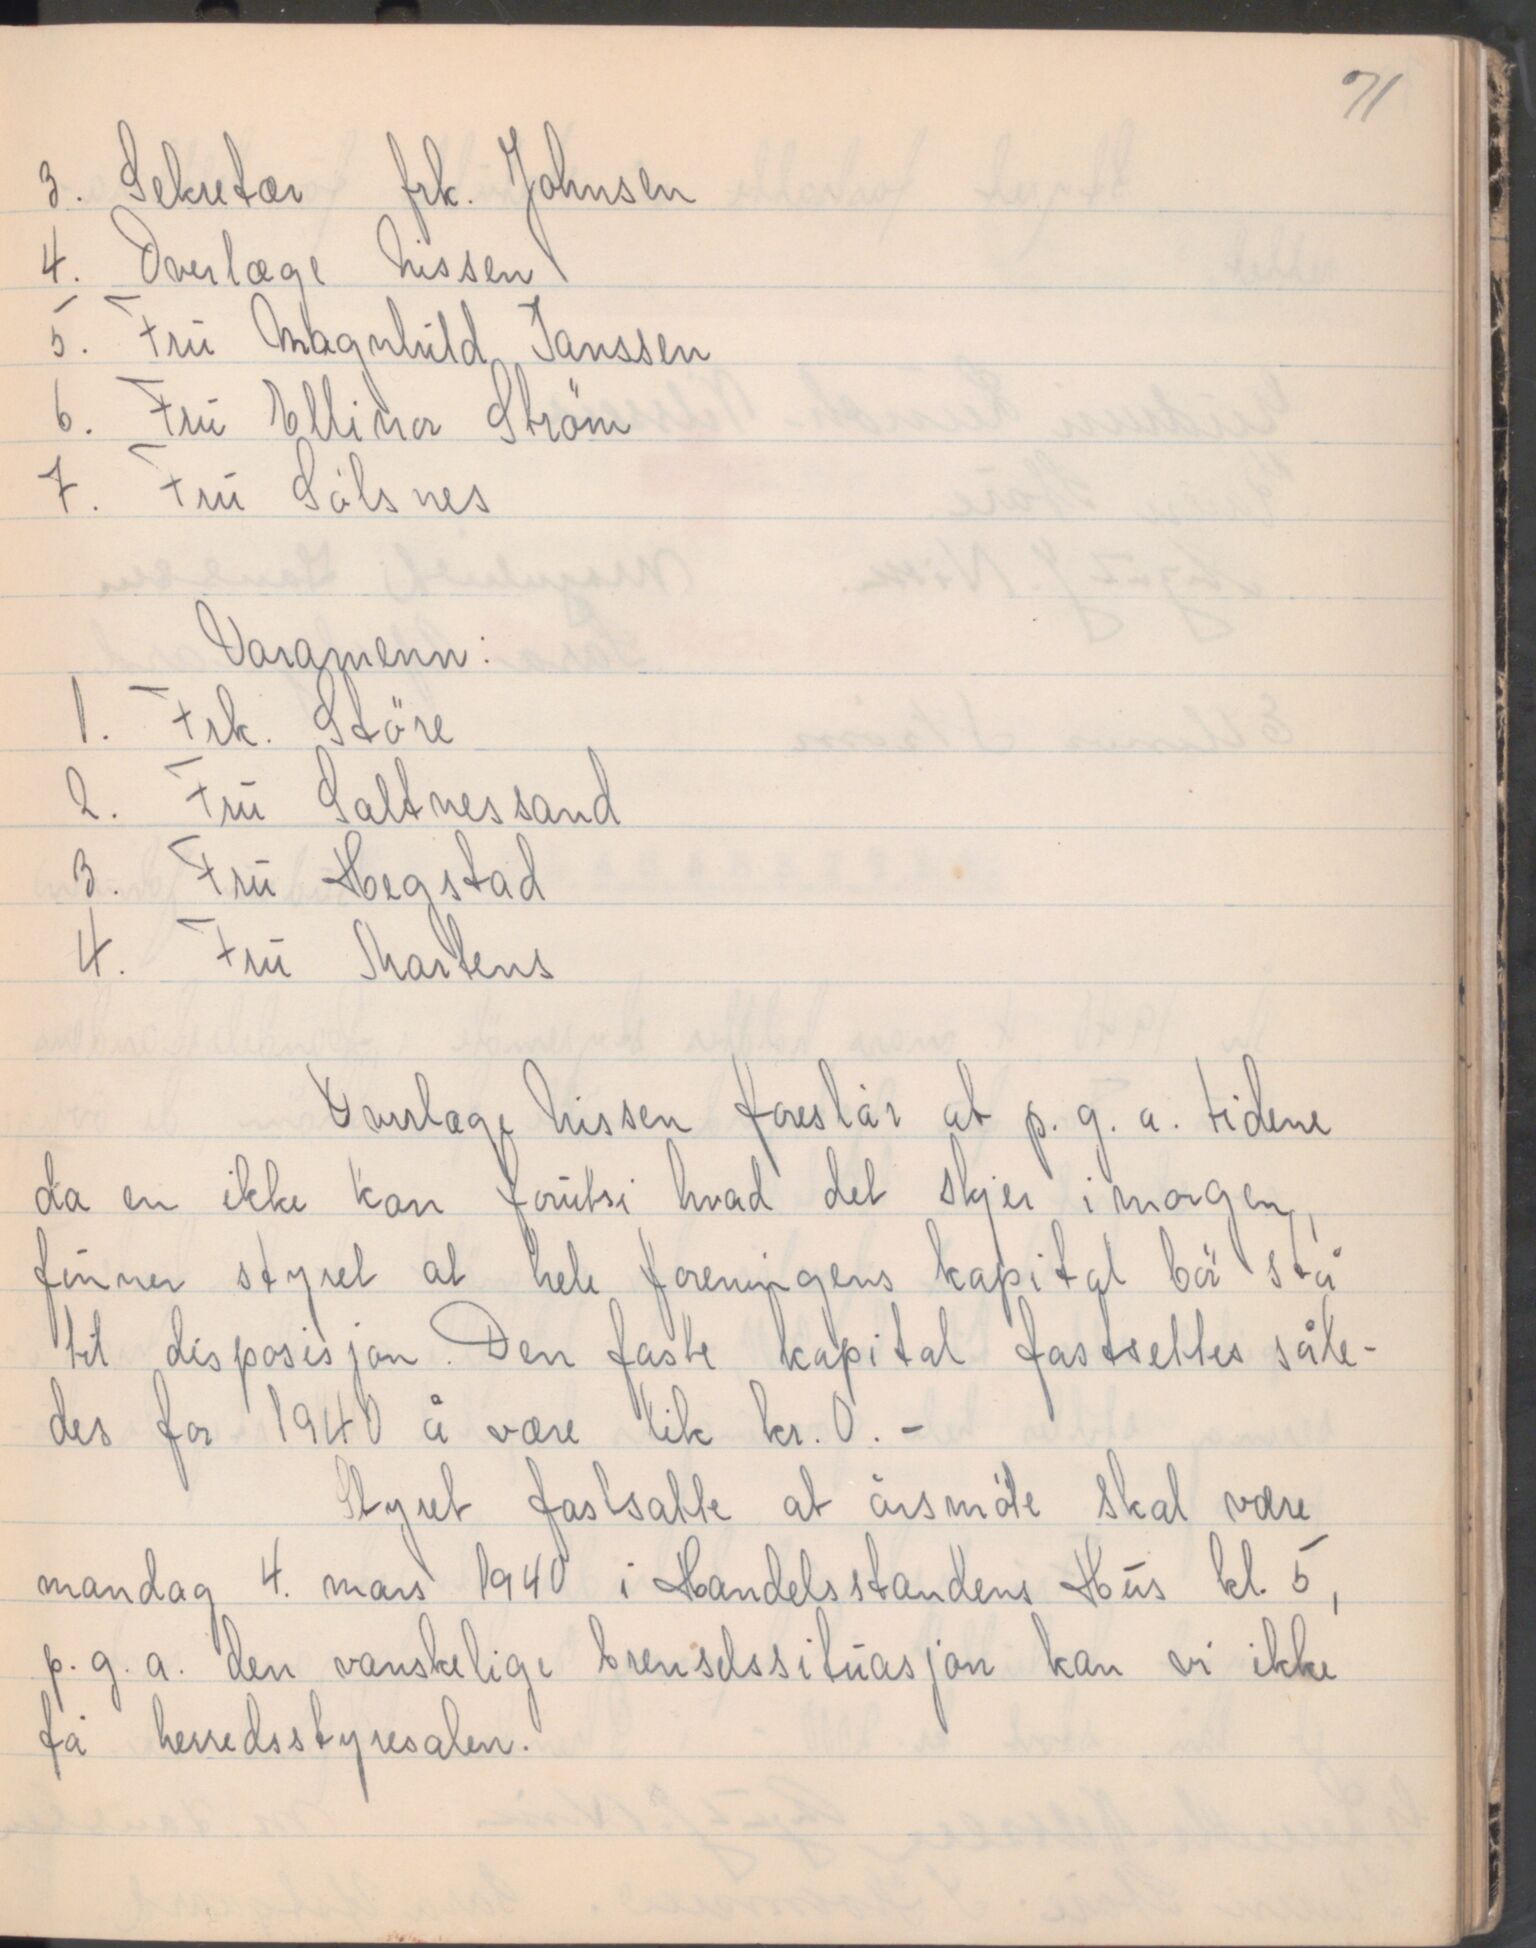 71
3. Sekretær frk. Johnsen
4. Overlæge Nissen
5. Fru Magnhild Janssen
6. Fru Ellinor Ström
7. Fru Sölsnes
Varamenn:
1. Frk. Störe
2. Fru Saltnessand
3. Fru Hegstad
4. Fru Martens
Overlæge Nissen foreslår at p. g. a. tidene
da en ikke kan forutsi hvad det skjer imorgen,
finner styret at hele foreningens kapital bör stå
til disposisjon. Den faste kapital fastsettes såle-
des for 1940 å være lik kr. 0. -
Styret fastsatte at årsmöte skal være
mandag 4. mars 1940 i Handelsstandens Hus kl. 5,
p. g. a. den vanskelige brenselssituasjon kan vi ikke
få herredsstyresalen.